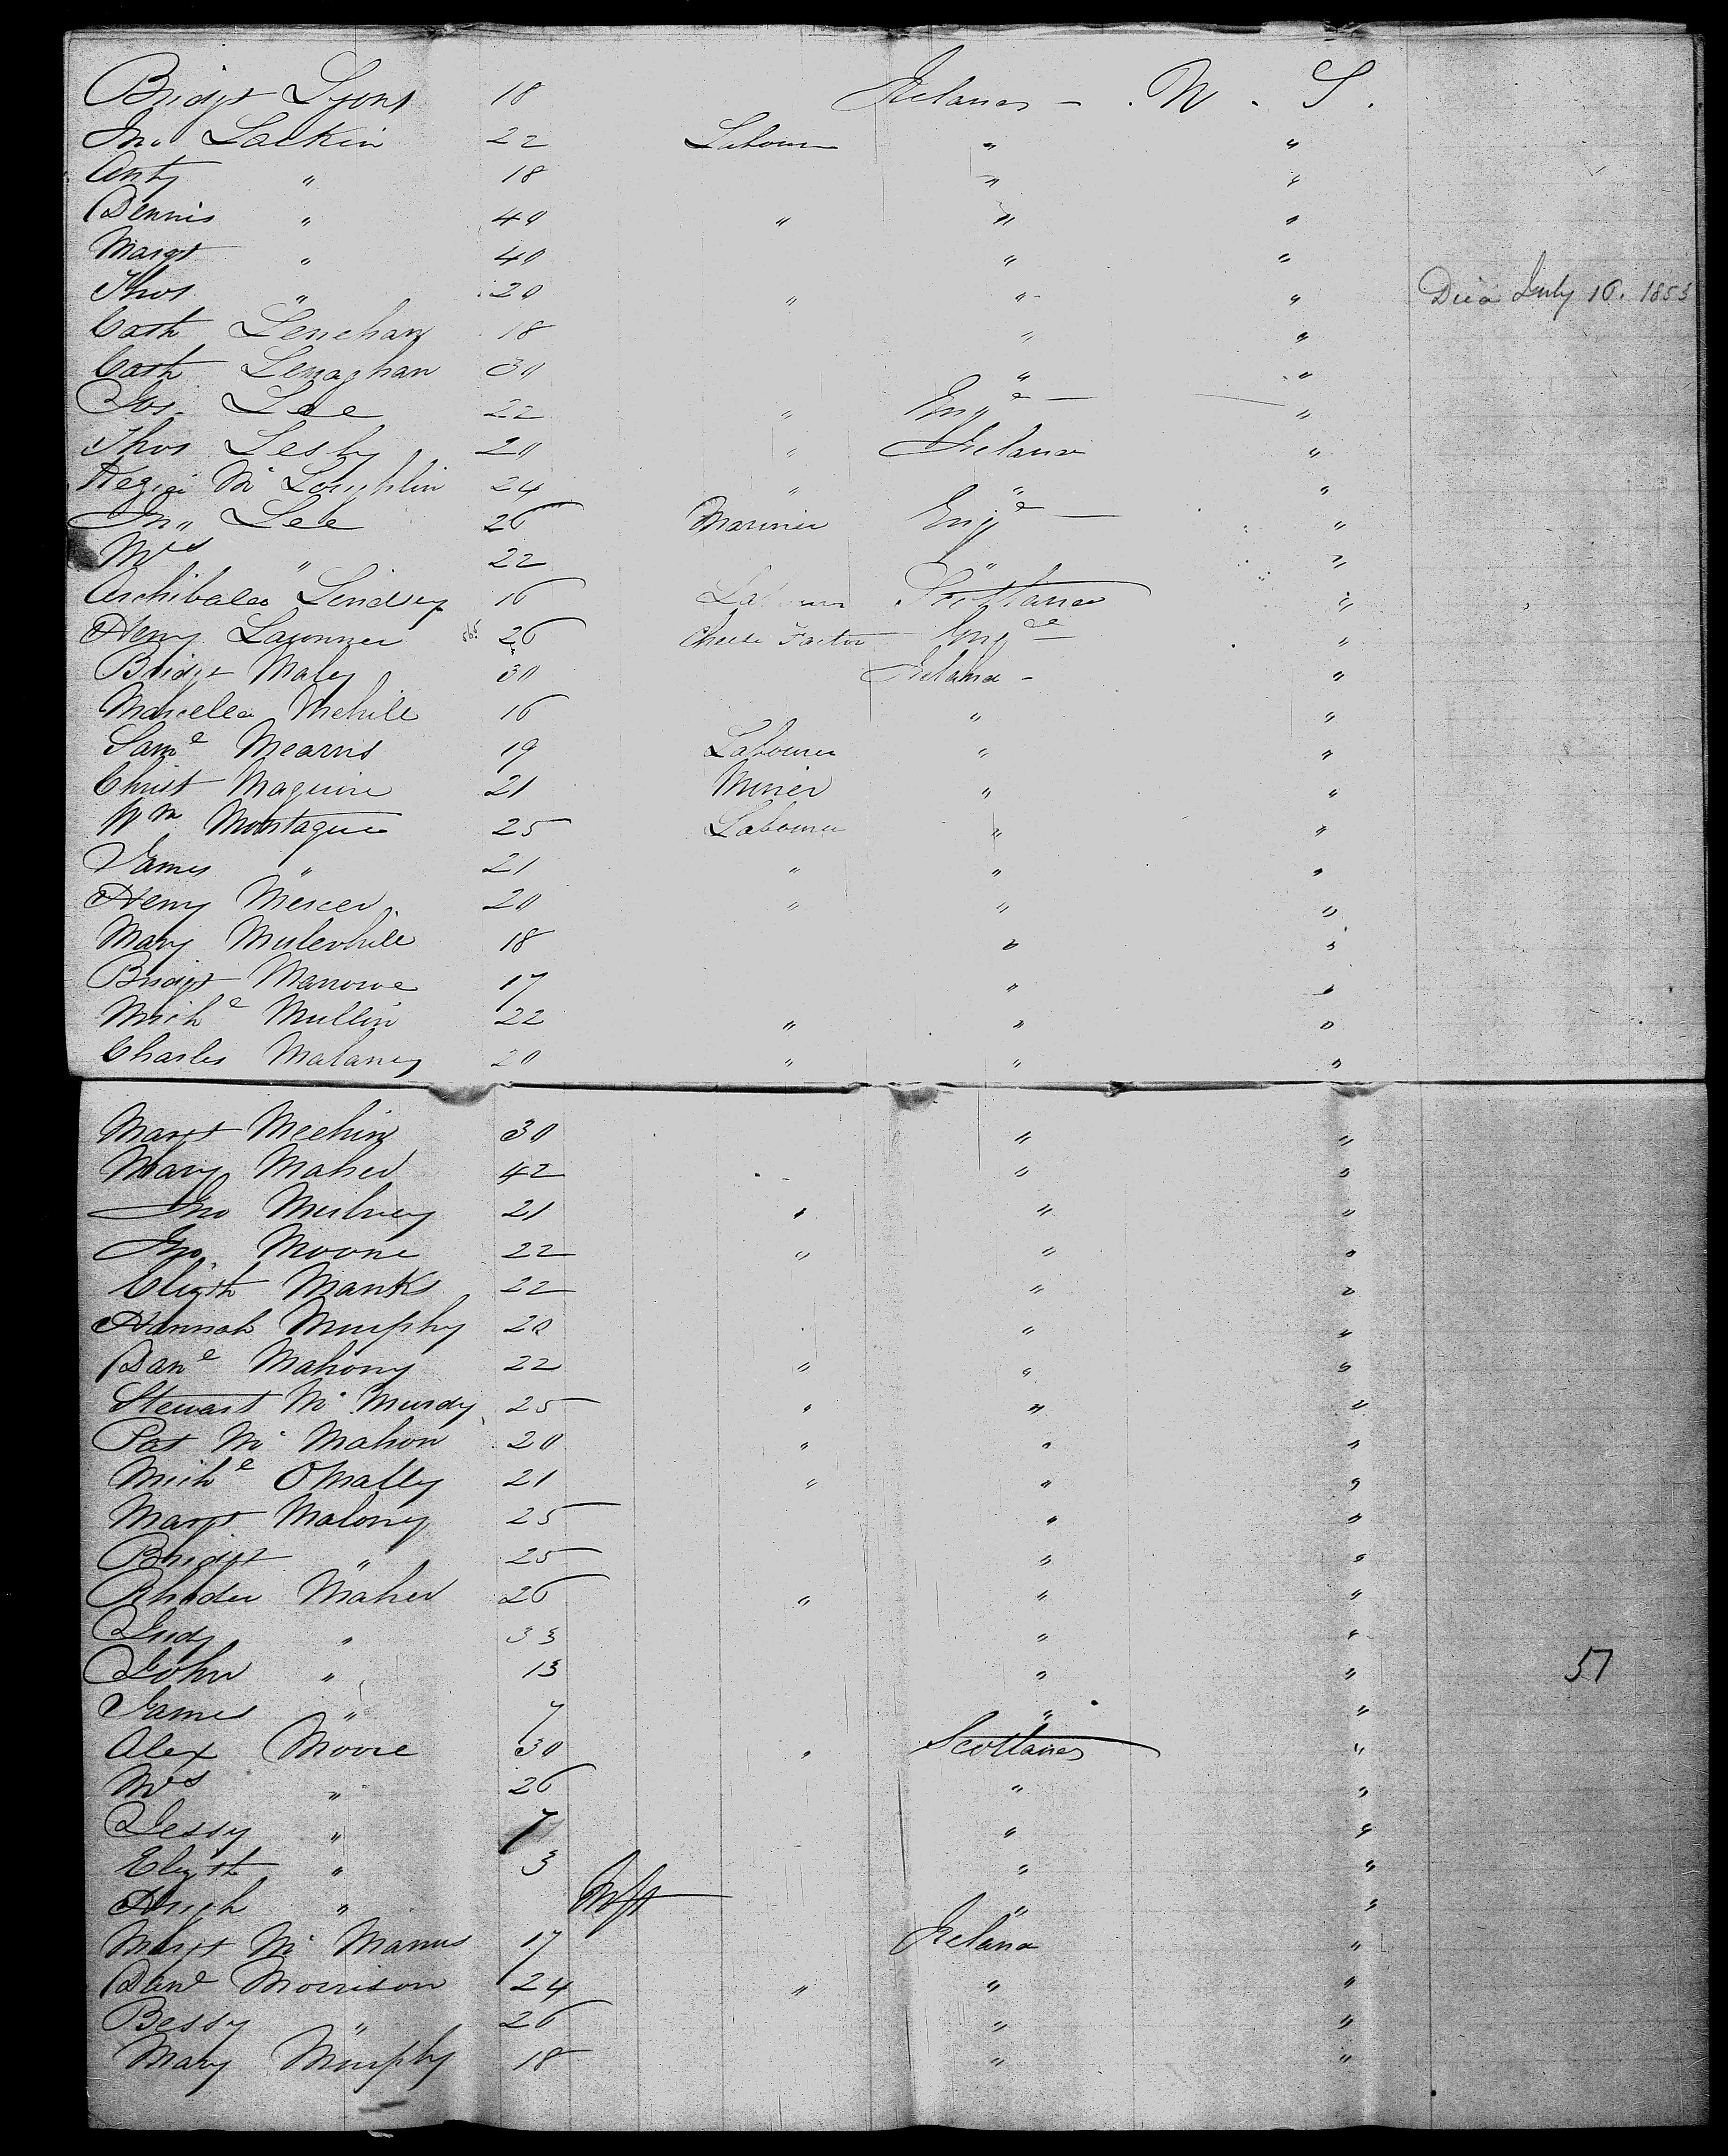 Bridgt Lyons 18 Ireland - . N . S .
Jno Larkin 22 Labourer " "
Anty " 18 " "
Dennis " 40 " " "
Margt " 40 " "
Thos " 20 " " " Died July 10. 1853
Cath Lenehan 18 " "
Cath Lenaghan 30 " "
Jos. Lee 22 " Engd "
Thos Lesly 20 " Ireland "
Mc Loughlin 24 " " "
Jno Lee 26 Mariner Engd "
Mrs " 22 " "
Archibald Lindsey 16 Labourer Scotland "
Henry 26 Cheese Factor Engd "
Bridgt Maley 30 Ireland - "
Marcella Mehill 16 " "
Saml Mearns 19 Labourer " "
Christ Maguire 21 Miner " "
Wm Montague 25 Labourer " "
James " 21 " " "
Henry Mercer 20 " " "
Mary Mulerhill 18 " "
Bridgt Marrowe 17 " "
Michl Mullin 22 " " "
Charles Malaney 20 " " "
Margt Meehin 30 " "
Mary Maher 42 " "
Jno Mulvey 21 " " "
Jno Moore 22 " " "
Elizth Manks 22 " "
Hannah Murphy 20 " "
Danl Mahony 22 " " "
Stewart Mc Murdy 25 " " "
Pat Mc Mahon 20 " " "
Michl OMalley 21 " " "
Margt Maloney 25 " "
Bridgt " 25 " "
Maher 26 " " "
Judy " 33 " "
John " 13 " " 51
James " 7 " "
Alex Moore 30 " Scotland "
Mrs " 26 " "
Jessy " 7 " "
Elizth " 3 " "
Hugh " Inft " "
Margt Mc Manus 17 Ireland "
Danl Morrison 24 " " "
Bessy " 26 " "
Mary Murphy 18 " "